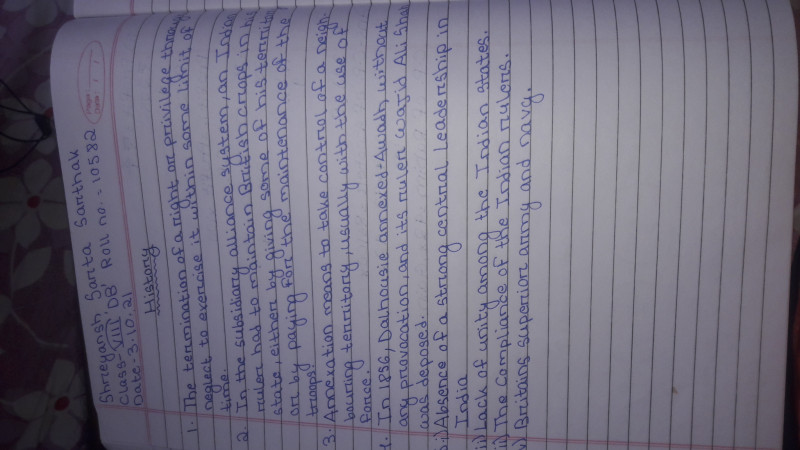 Shreyansh Sarita Sarthak
Class-VIII 'DB' Roll no.:- 10582
Date:-3.10.21
Page
Date
History
1. The termination of a right or privilege through
neglect to exercise it within some limit of
time.
2. In the subsidiary alliance system, an Indian
ruler had to maintain British crops in his
state, either by giving some of his territory
or by paying for the maintenance of the
troops.
3. Annexation means to take control of a neigh-
bouring territory, usually with the use of
force.
4. In 1856, Dalhousie annexed Awadh without
any provocation, and its ruler Wajid Ali Shah
was deposed.
i) Absence of a strong central leadership in
India
ii) Lack of unity among the Indian states.
iii) The Compliance of the Indian rulers.
iv) Britains superior army and navy.